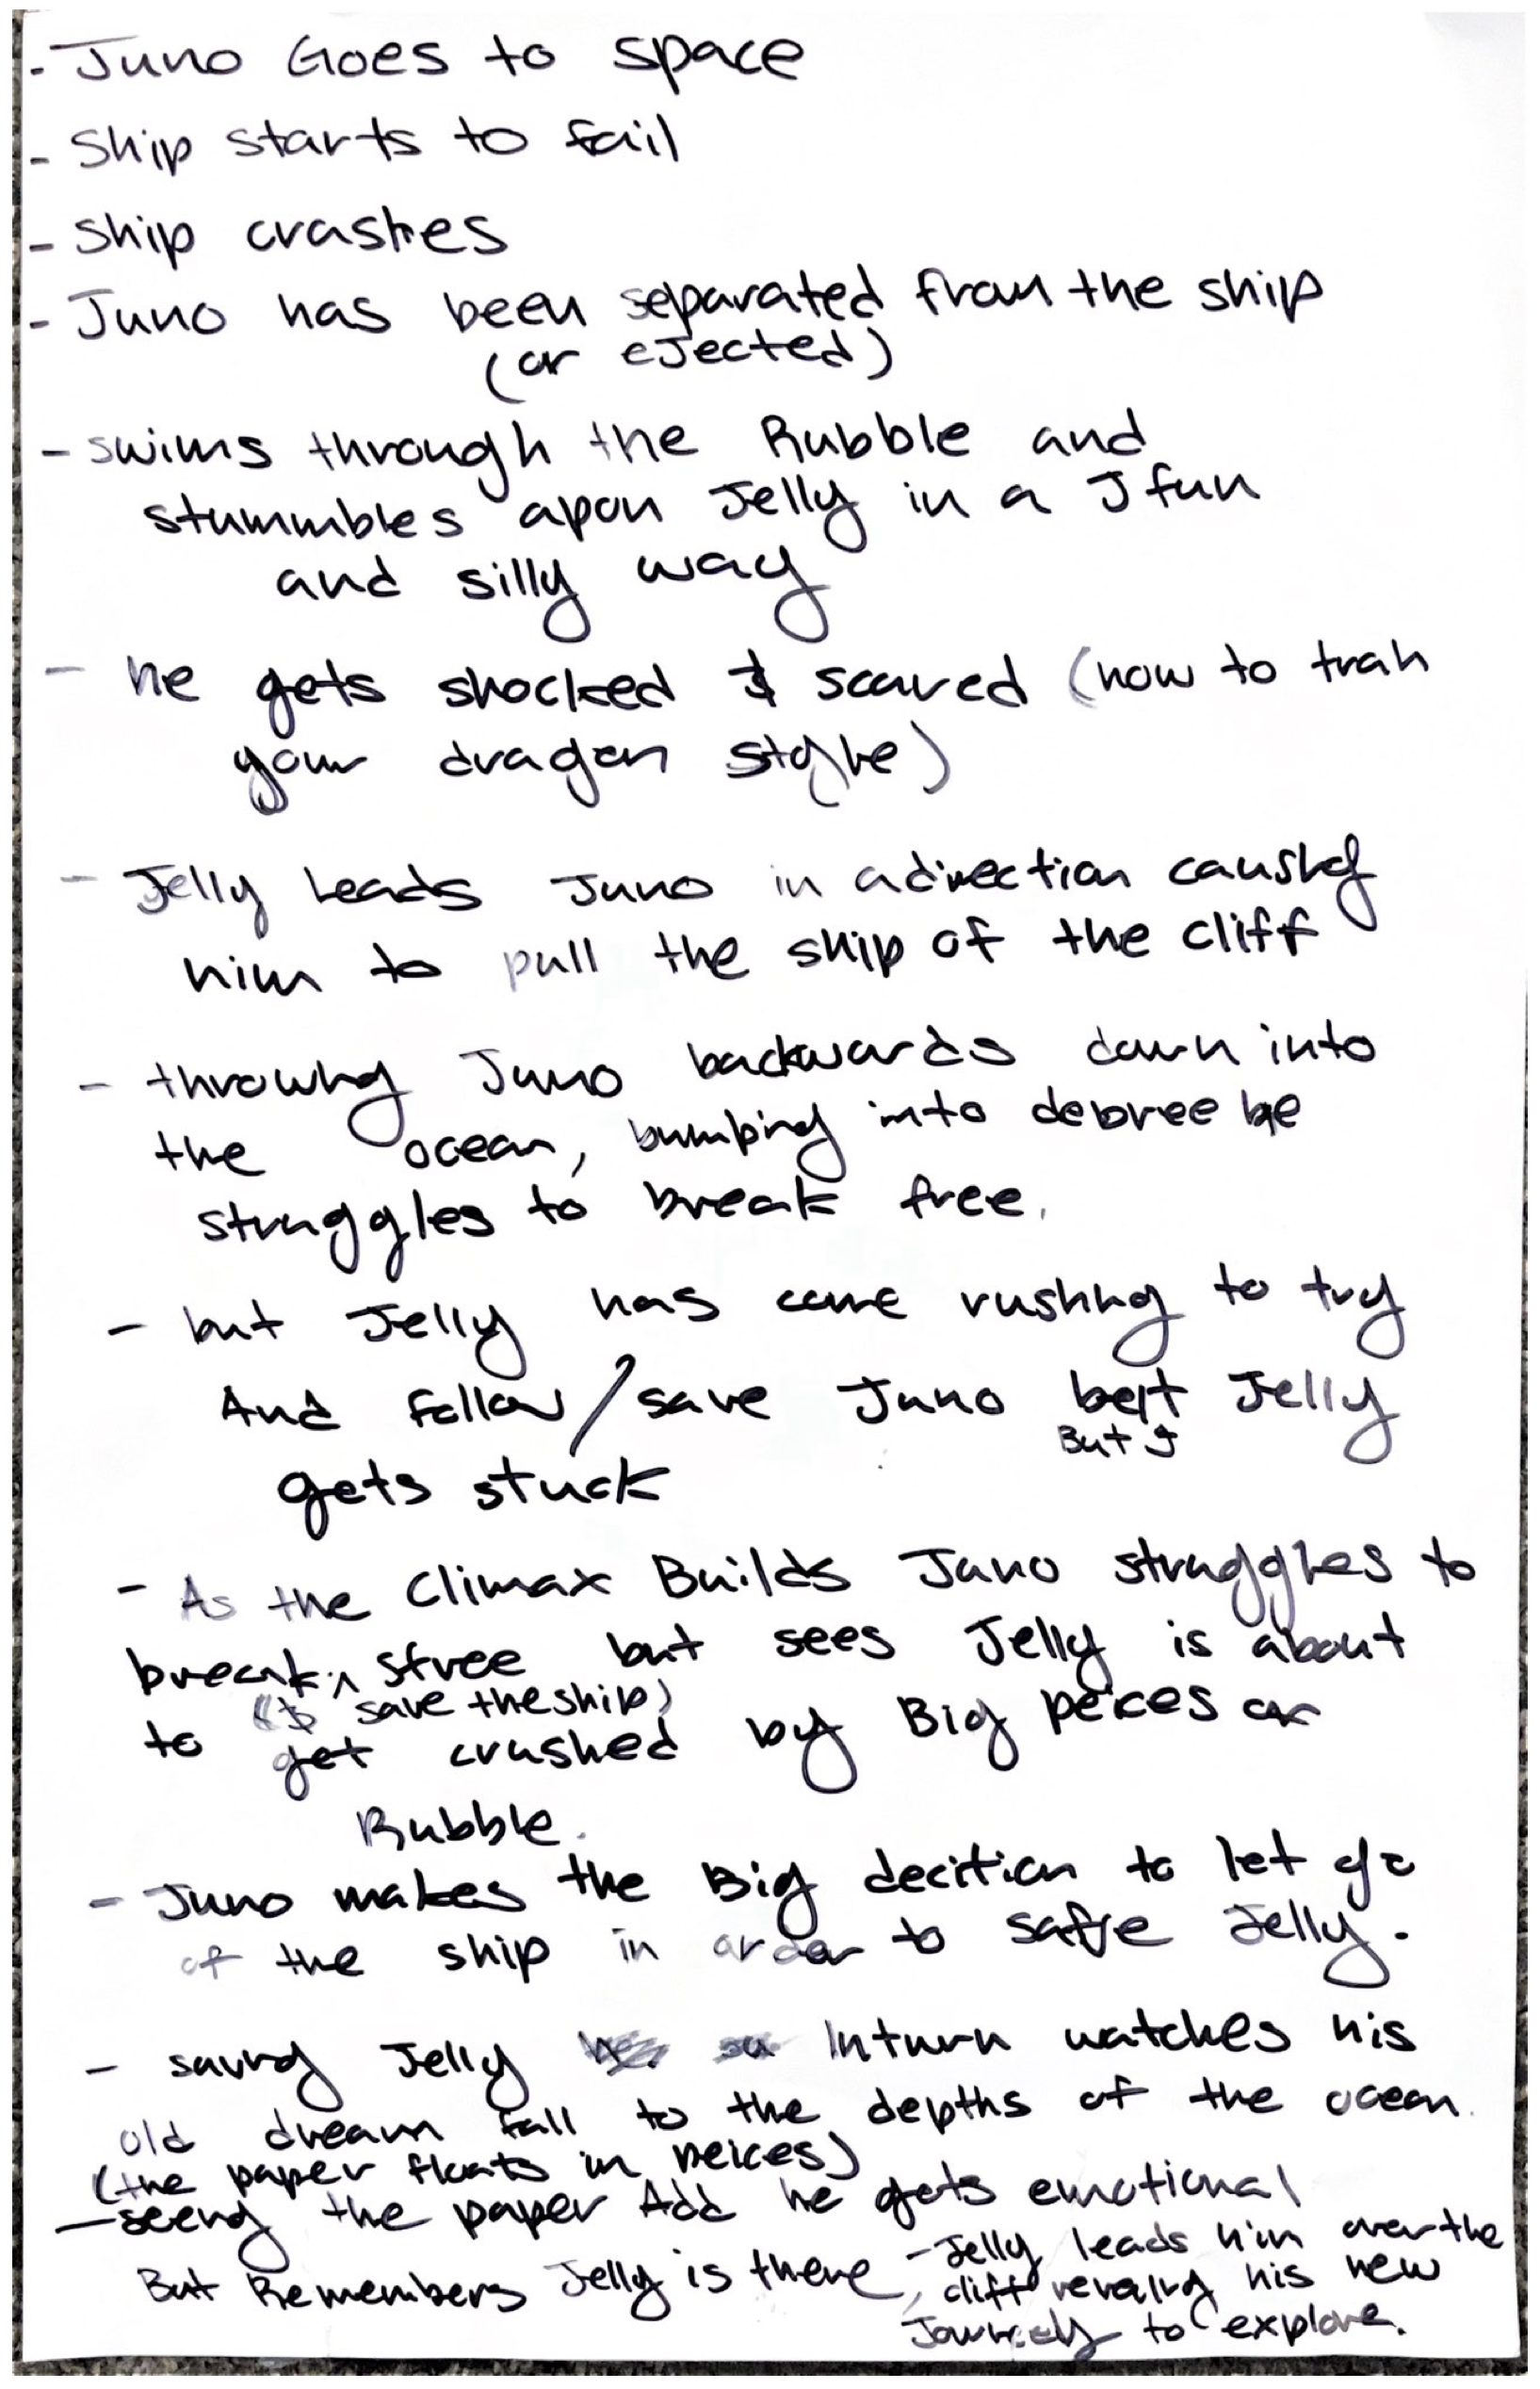 - Juno Goes to space
- Ship starts to fail
- Ship crashes
- Juno has been separated from the ship
(or ejected)
- swims through the Rubble and
stummbles apon Jelly in a J fun
and silly way
- he gets shocked & scared (how to train
your dragon style)
- Jelly leads Juno in a direction causing
him to pull the ship of the cliff
- throwing Juno backwards down into
the ocean, bumping into debree he
struggles to break free.
- but Jelly has come rushing to try
And follow/save Juno but Jelly
But J
gets stuck
- As the Climax Builds Juno struggles to
break ^ free but sees Jelly is about
(& save the ship)
to get crushed by Big peices or
Rubble.
- Juno makes the Big decition to let go
of the ship in order to safe Jelly.
- saving Jelly Inturn watches his
old dream fall to the depths of the ocean.
(the paper floats in peices)
- seeing the paper Add he gets emotional
But Remembers Jelly is there, - Jelly leads him over the
cliff revealing his new
Journey to explore.